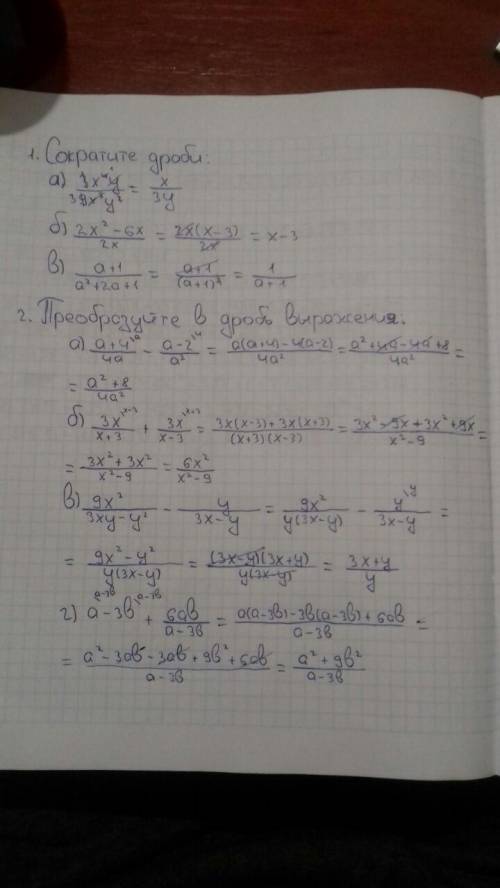 1. Сократите дроби:
а) 3x⁴y / 9x³y² = x / 3y
б) 2x² - 6x / 2x = 2x(x-3) / 2x = x-3
в) a+1 / a²+2a+1 = a+1 / (a+1)² = 1 / a+1
2. Преобразуйте в дробь выражения.
а) a+4 / 4a - a-2 / a² = a(a+4)-4(a-2) / 4a² = a²+4a-4a+8 / 4a² =
= a²+8 / 4a²
б) 3x / x+3 + 3x / x-3 = 3x(x-3)+3x(x+3) / (x+3)(x-3) = 3x²-9x+3x²+9x / x²-9 =
= 3x²+3x² / x²-9 = 6x² / x²-9
в) 9x² / 3xy-y² - y / 3x-y = 9x² / y(3x-y) - y / 3x-y =
= 9x²-y² / y(3x-y) = (3x-y)(3x+y) / y(3x-y) = 3x+y / y
г) a-3b + 6ab / a-3b = a(a-3b)-3b(a-3b)+6ab / a-3b =
= a²-3ab-3ab+9b²+6ab / a-3b = a²+9b² / a-3b